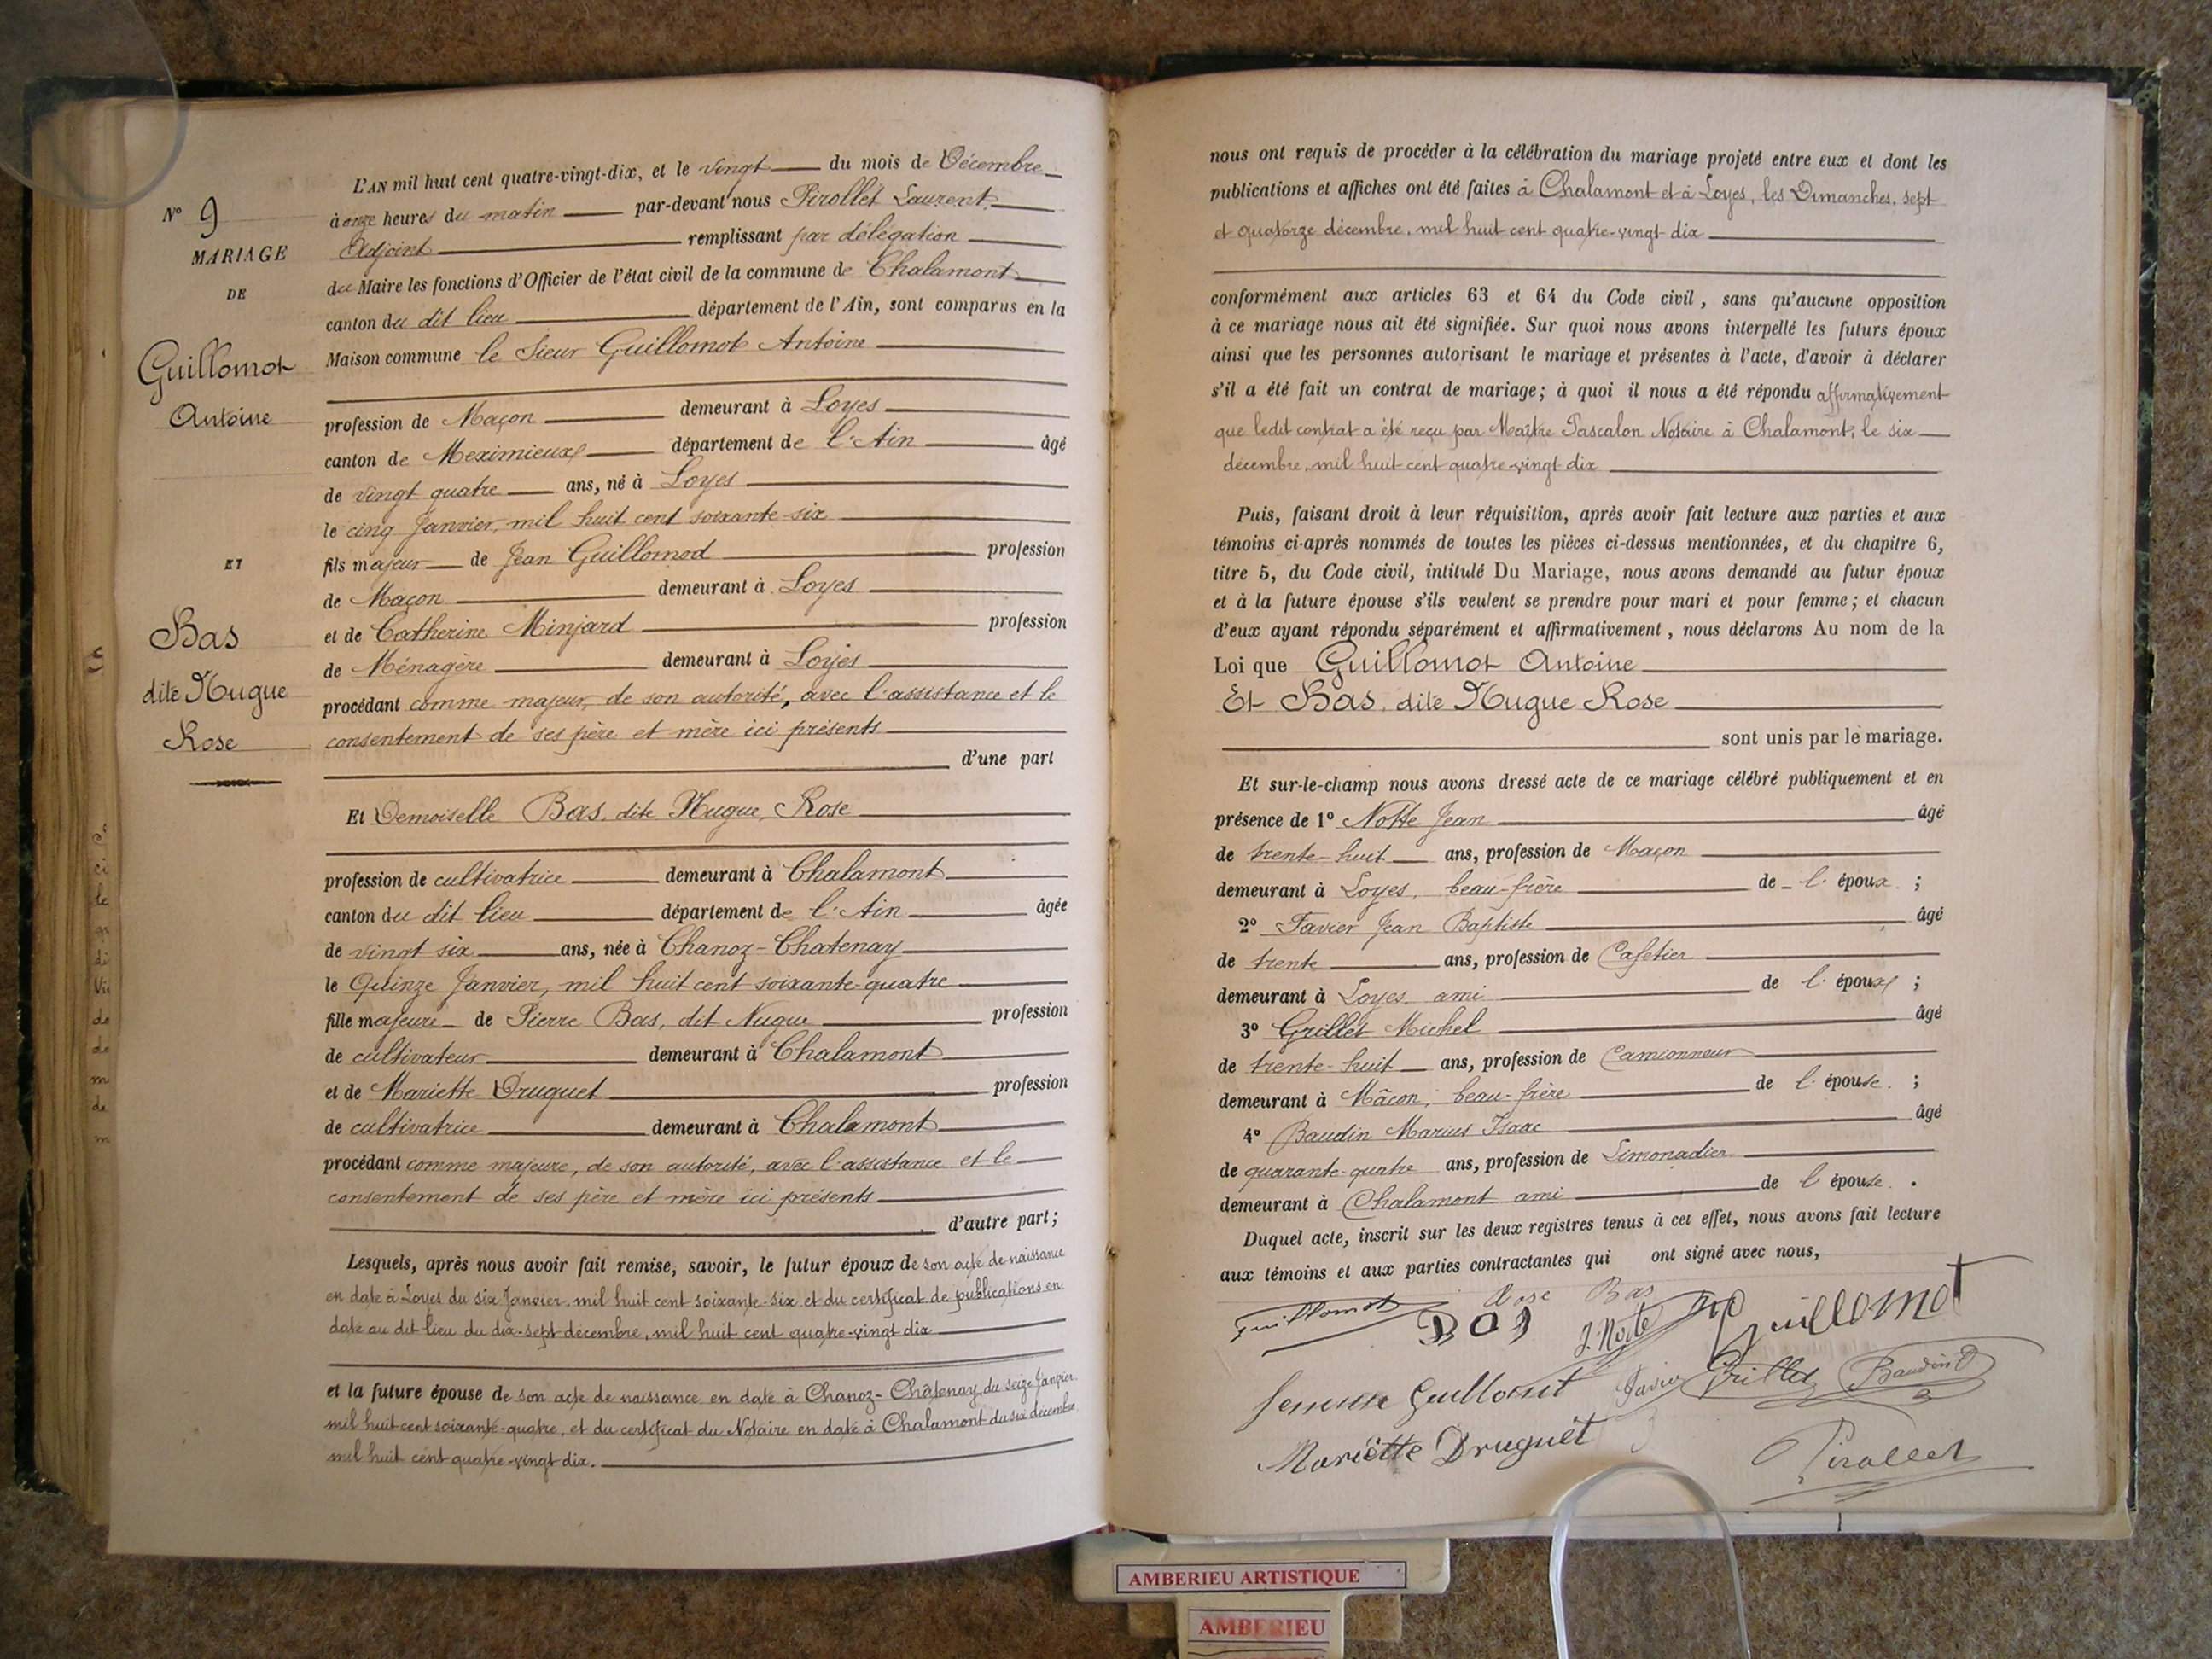 L'AN mil huit cent quatre-vingt-dix, et le vingt du mois de Décembre
à onze heures du matin par-devant nous Pirollet Laurent,
Adjoint remplissant par délégation
du Maire les fonctions d'Officier de l'état civil de la commune de Chalamont
canton du dit lieu département de l'Ain, sont comparus en la
Maison commune le Sieur Guillomot Antoine
profession de Maçon demeurant à Loyes
canton de Meximieux département de l'Ain âgé
de vingt quatre ans, né à Loyes
le cinq Janvier, mil huit cent soixante-six
fils majeur de Jean Guillomod profession
de Maçon demeurant à Loyes
et de Catherine Minjard profession
de Ménagère demeurant à Loyes
procédant comme majeur, de son autorité, avec l'assistance et le
consentement de ses père et mère ici présents
d'une part
Et Demoiselle Bas, dite Nugue, Rose
profession de cultivatrice demeurant à Chalamont
canton du dit lieu département de l'Ain âgée
de vingt six ans, née à Chanoz-Chatenay
le Quinze Janvier, mil huit cent soixante-quatre
fille majeure de Pierre Bas, dit Nugue profession
de cultivateur demeurant à Chalamont
et de Mariette Druguet profession
de cultivatrice demeurant à Chalamont
procédant comme majeure, de son autorité, avec l'assistance et le
consentement de ses père et mère ici présents
d'autre part;
Lesquels, après nous avoir fait remise, savoir, le futur époux de son acte de naissance
en date à Loyes du six Janvier, mil huit cent soixante-six et du certificat de publications en
date au dit lieu du dix-sept décembre, mil huit cent quatre-vingt dix
et la future épouse de son acte de naissance en date à Chanoz-Châtenay, du seize Janvier
mil huit cent soixante-quatre, et du certificat du Notaire en date à Chalamont du six décembre
mil huit cent quatre-vingt dix.
N° 9
MARIAGE
DE
Guillomot
Antoine
ET
Bas
dite Nugue
Rose
nous ont requis de procéder à la célébration du mariage projeté entre eux et dont les
publications et affiches ont été faites à Chalamont et à Loyes, les Dimanches, sept
et quatorze décembre, mil huit cent quatre-vingt dix
conformément aux articles 63 et 64 du Code civil, sans qu'aucune opposition
à ce mariage nous ait été signifiée. Sur quoi nous avons interpellé les futurs époux
ainsi que les personnes autorisant le mariage et présentes à l'acte, d'avoir à déclarer
s'il a été fait un contrat de mariage; à quoi il nous a été répondu affirmativement
que ledit contrat a été reçu par Maître Pascalon Notaire à Chalamont, le six
décembre, mil huit cent quatre-vingt dix
Puis, faisant droit à leur réquisition, après avoir fait lecture aux parties et aux
témoins ci-après nommés de toutes les pièces ci-dessus mentionnées, et du chapitre 6,
titre 5, du Code civil, intitulé Du Mariage, nous avons demandé au futur époux
et à la future épouse s'ils veulent se prendre pour mari et pour femme; et chacun
d'eux ayant répondu séparément et affirmativement, nous déclarons Au nom de la
Loi que Guillomot Antoine
Et Bas, dite Nugue Rose
sont unis par le mariage.
Et sur-le-champ nous avons dressé acte de ce mariage célébré publiquement et en
présence de 1° Notte Jean âgé
de trente-huit ans, profession de Maçon
demeurant à Loyes, beau-frère de l'époux ;
2° Favier Jean Baptiste âgé
de trente ans, profession de Cafetier
demeurant à Loyes, ami de l'époux ;
3° Grillet Michel âgé
de trente-huit ans, profession de Camionneur
demeurant à Mâcon, beau-frère de l'épouse ;
4° Baudin Marius Isaac âgé
de quarante-quatre ans, profession de Limonadier
demeurant à Chalamont ami de l'épouse .
Duquel acte, inscrit sur les deux registres tenus à cet effet, nous avons fait lecture
aux témoins et aux parties contractantes qui ont signé avec nous,
Guillomot Bas Rose Bas J. Notte Guillomot
femme Guillomot Favier Grillet Baudin
Mariette Druguet
Pirollet
AMBERIEU ARTISTIQUE
AMBERIEU